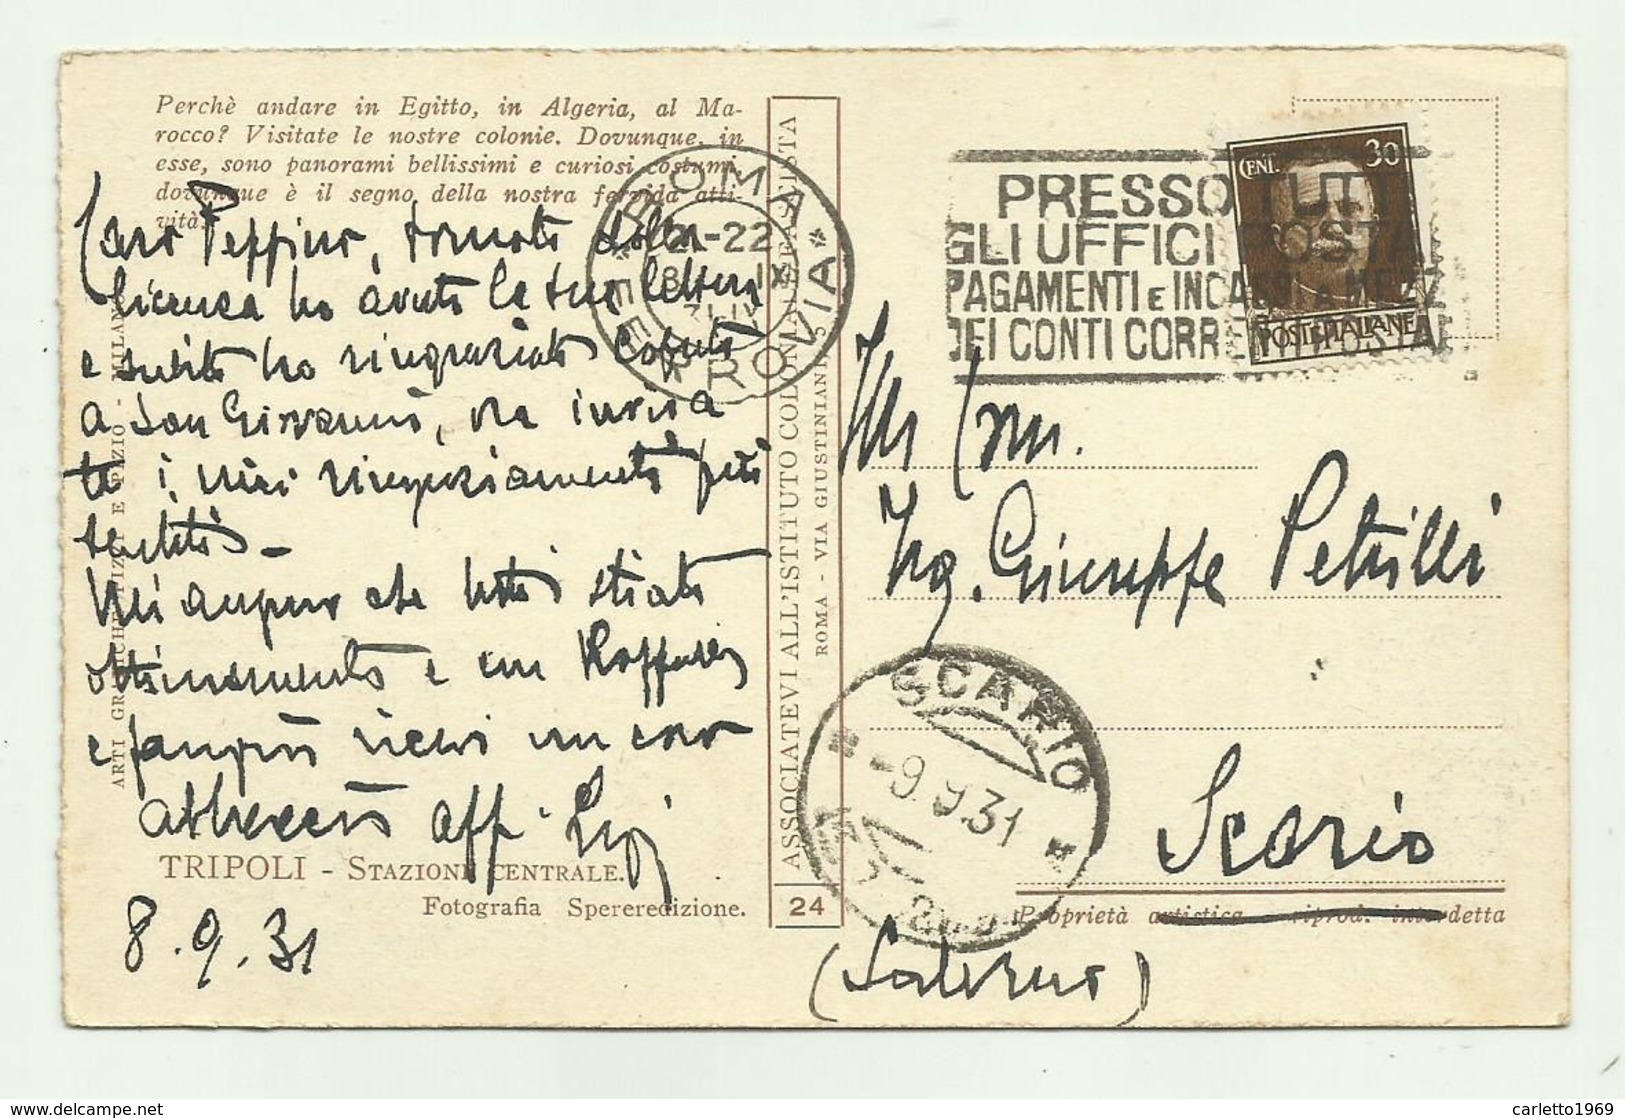 Perchè andare in Egitto, in Algeria, al Ma-
rocco? Visitate le nostre colonie. Dovunque, in
esse, sono panorami bellissimi e curiosi costumi,
dovunque è il segno della nostra fervida atti-
vità.
Caro Peppino, tornato dalla
licenza ho avuto la tua lettera
e subito ho ringraziato
a San Giovanni,
i miei ringraziamenti più
sentiti.
Mi auguro che tutti stiate
ottimamente e
e ricevi un caro
abbraccio aff. Gigi
TRIPOLI - STAZIONE CENTRALE.
Fotografia Spereredizione.
8.9.31
ARTI GRAFICHE PIZZI E PIZIO - MILANO
ASSOCIATEVI ALL'ISTITUTO COLONIALE FASCISTA
ROMA - VIA GIUSTINIANI, 5
24
ROMA
FERROVIA
21-22
PRESSO TUTTI
GLI UFFICI POSTALI
PAGAMENTI E INCASSI A MEZZO
DEI CONTI CORRENTI POSTALI
CENT. 30
POSTE ITALIANE
Ill. Comm.
Ing. Giuseppe Petrilli
SCARIO
-9.9.31
Scario
Proprietà artistica - riprod. interdetta
(Salerno)
carletto1969